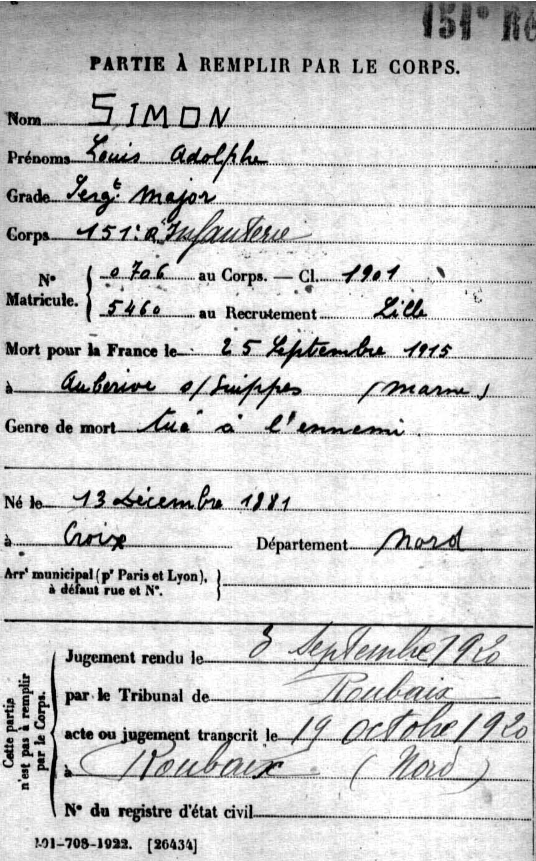 151e Ré
PARTIE À REMPLIR PAR LE CORPS.
Nom SIMON
Prénoms Louis Adolphe
Grade Sergt Major
Corps 151e d'Infanterie
N° Matricule. { 0706 au Corps. — Cl. 1901
5460 au Recrutement Lille
Mort pour la France le 25 Septembre 1915
à Auberive s/Suippes (Marne)
Genre de mort tué à l'ennemi
Né le 13 Décembre 1881
à Croix Département Nord
Arrt municipal (pr Paris et Lyon),
à défaut rue et N°.
Cette partie n'est pas à remplir par le Corps.
Jugement rendu le 3 Septembre 1920
par le Tribunal de Roubaix
acte ou jugement transcrit le 19 octobre 1920
à Roubaix (Nord)
N° du registre d'état civil
101-708-1922. [26434]